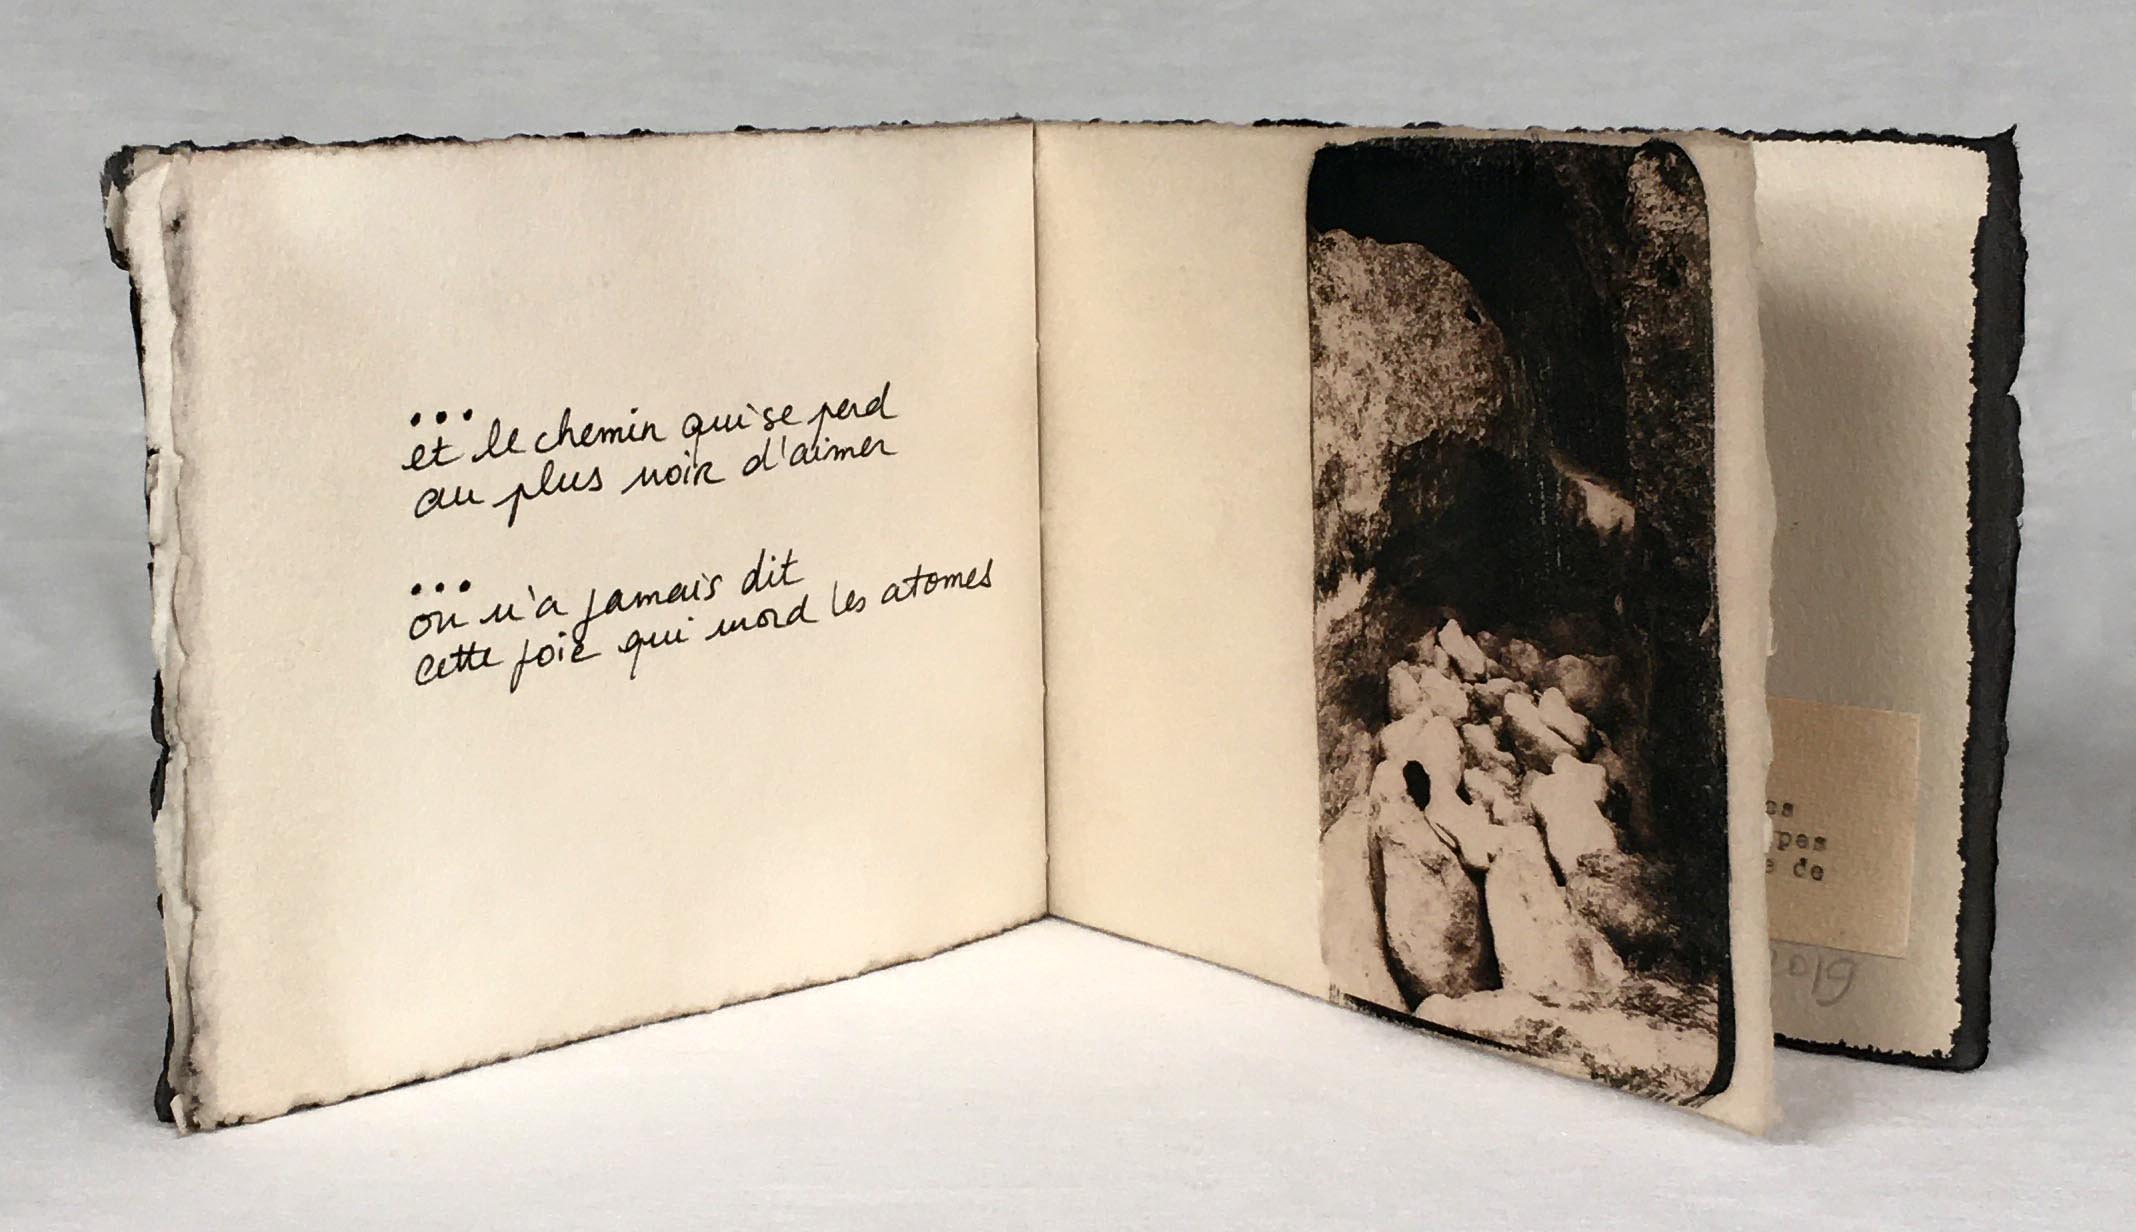 ...
et le chemin qui se perd
au plus noir d'aimer
...
on n'a jamais dit
cette joie qui mord les atomes
es
pes
e de
2019